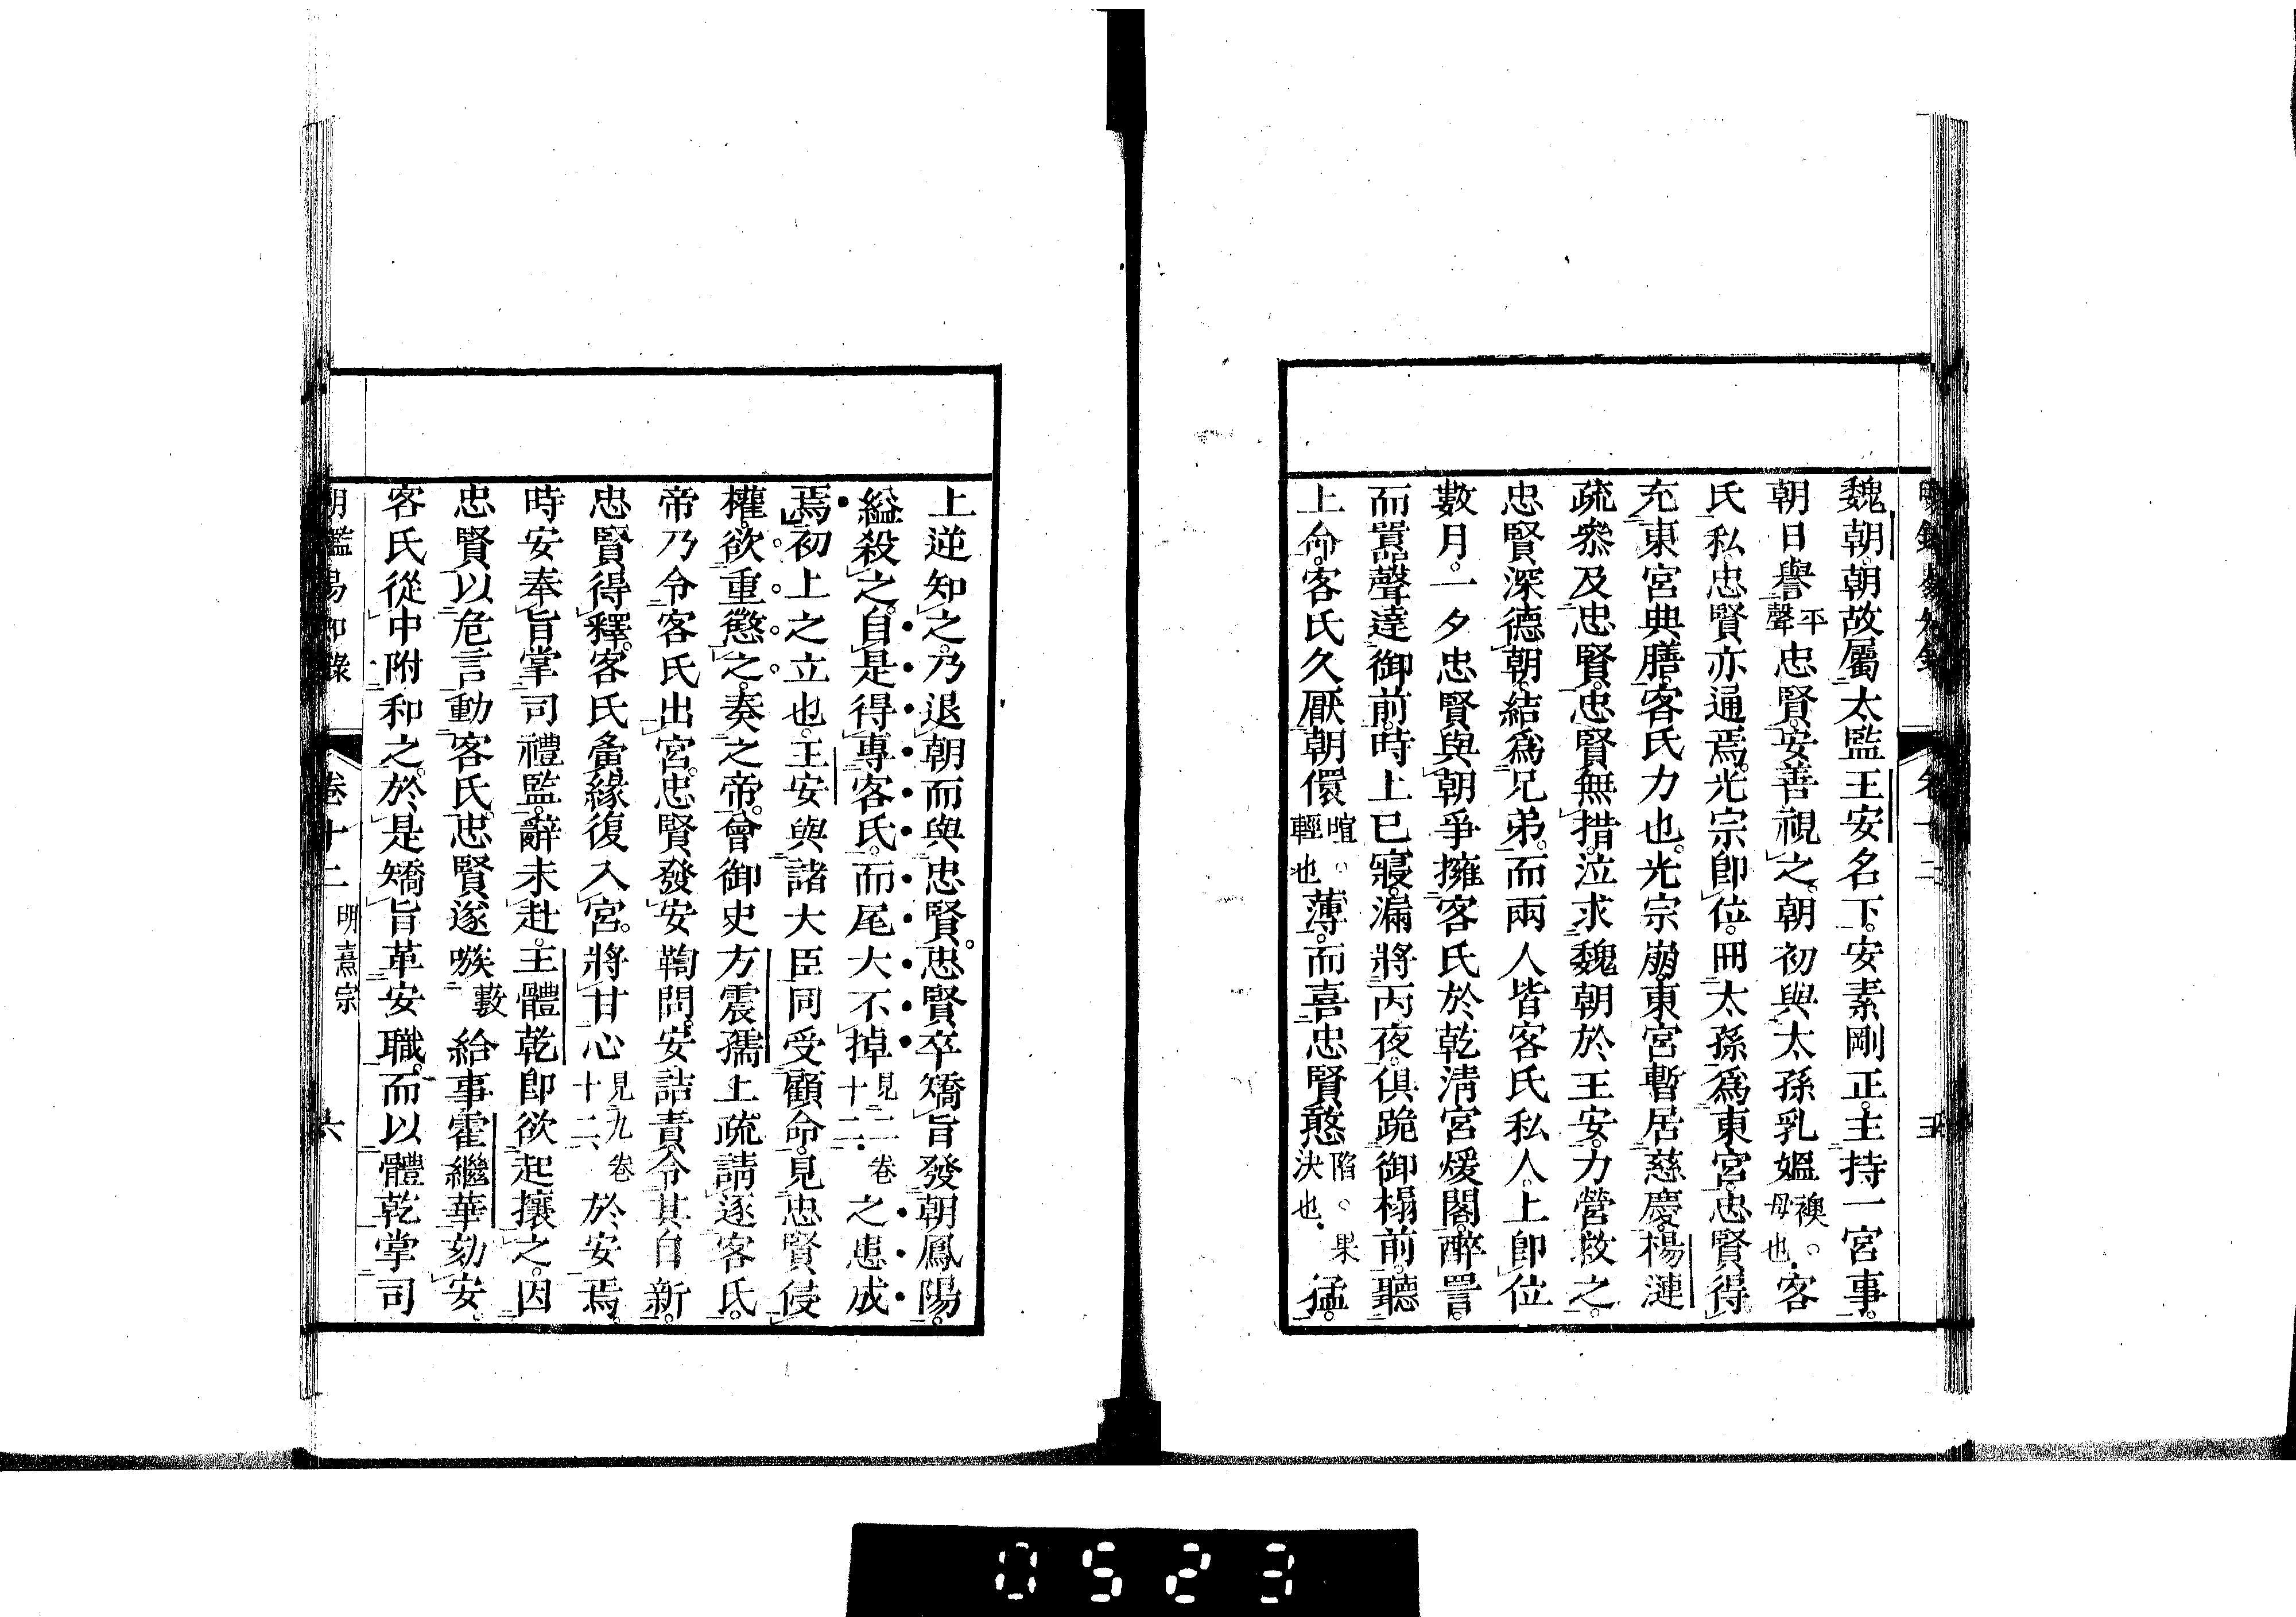 魏朝。朝故屬太監王安名下。安素剛正。主持一宮事。
朝日譽平聲忠賢。安善視之。朝初與太孫乳媼襖。母也。客
氏私。忠賢亦通焉。光宗卽位。冊太孫爲東宮。忠賢得
充東宮典膳。客氏力也。光宗崩。東宮暫居慈慶。楊漣
疏叅及忠賢。忠賢無措。泣求魏朝於王安。力營救之。
忠賢深德朝。結爲兄弟。而兩人皆客氏私人。上卽位
數月。一夕忠賢與朝爭擁客氏於乾淸宮煖閣。醉詈
而囂聲達御前。時上已寢。漏將丙夜。俱跪御榻前。聽
上命。客氏久厭朝儇暄。輕也薄。而喜忠賢憨陷。果決也。猛。
上逆知之。乃退朝而與忠賢。忠賢卒矯旨發朝鳳陽。
縊殺之。自是得專客氏。而尾大不掉見二卷十二之患成
焉。初上之立也。王安與諸大臣同受顧命。見忠賢侵
權。欲重懲之。奏之帝。會御史方震孺上疏。請逐客氏。
帝乃令客氏出宮。忠賢發安鞫問。安詰責。令其自新。
忠賢得釋。客氏夤緣復入宮。將甘心見九卷十二於安焉。
時安奉旨掌司禮監。辭未赴。王體乾卽欲起攘之。因
忠賢以危言動客氏。忠賢遂嗾藪給事霍繼華劾安。
客氏從中附和之。於是矯旨革安職。而以體乾掌司
明鑑易知錄 卷十二 明熹宗 六
0523